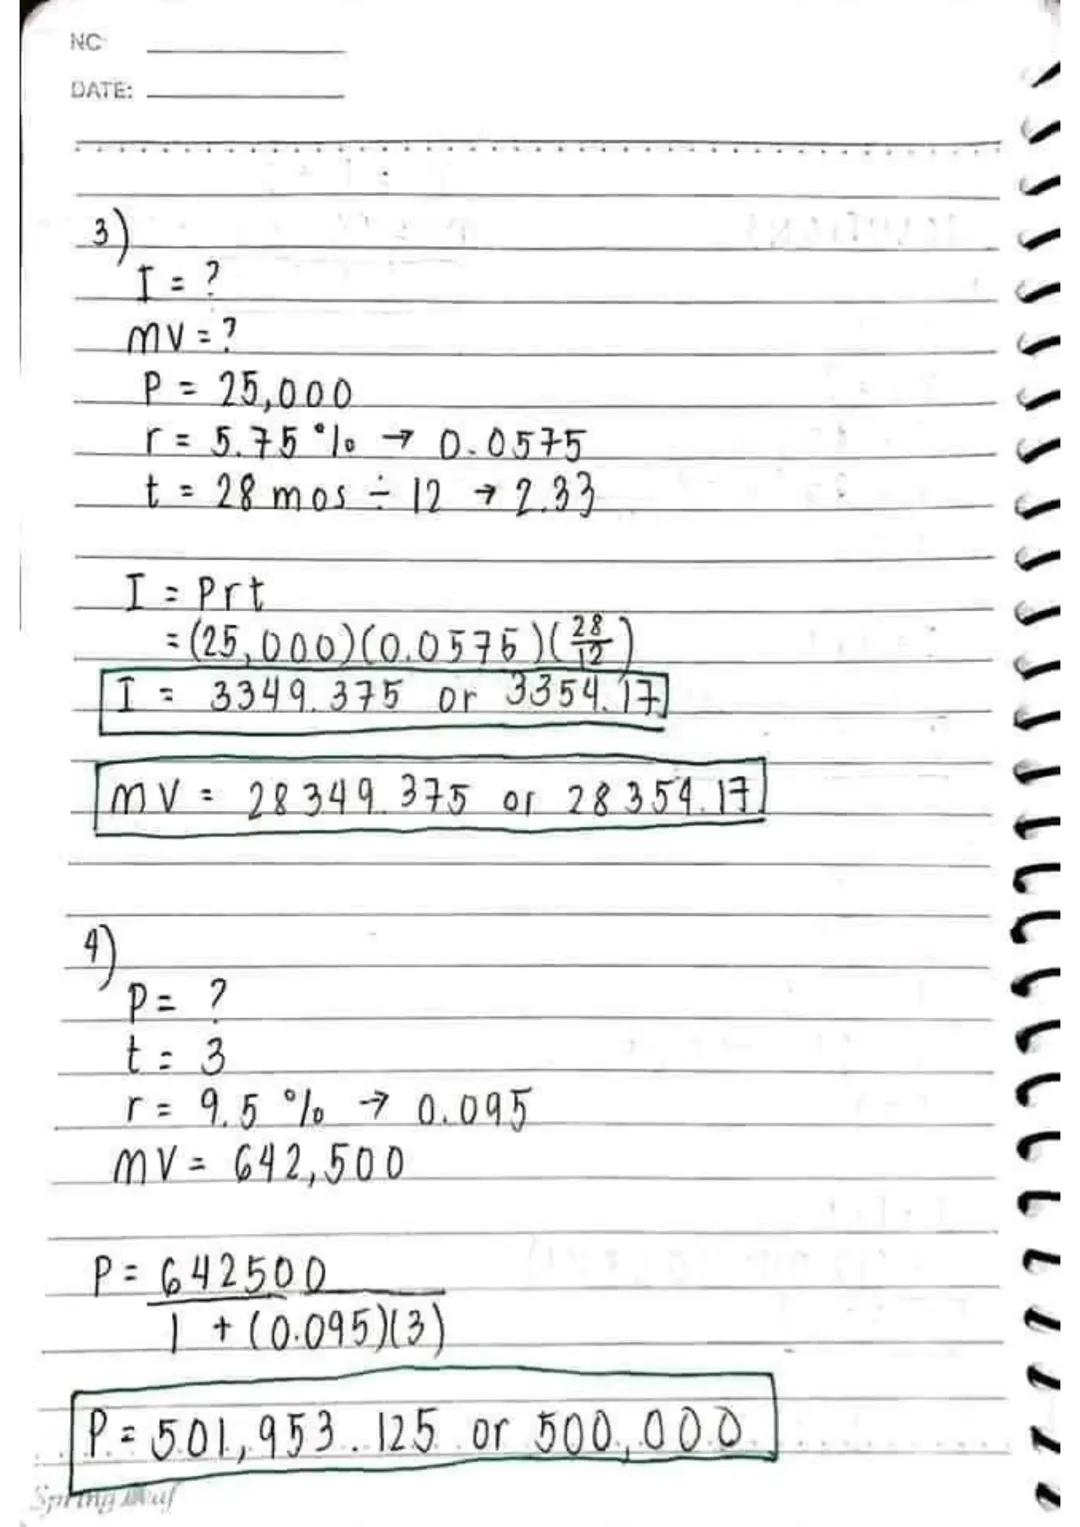 NO
DATE:
3)
I = ?
MV = ?
P = 25,000
r = 5.75 % → 0.0575
t = 28 mos ÷ 12 → 2.33
I = Prt
= (25,000)(0.0575)(28/12)
I = 3349.375 or 3354.17
MV = 28349.375 or 28354.17
4)
P = ?
t = 3
r = 9.5 % → 0.095
MV = 642,500
P = 642500
1 + (0.095)(3)
P = 501,953.125 or 500,000
Spring Leaf